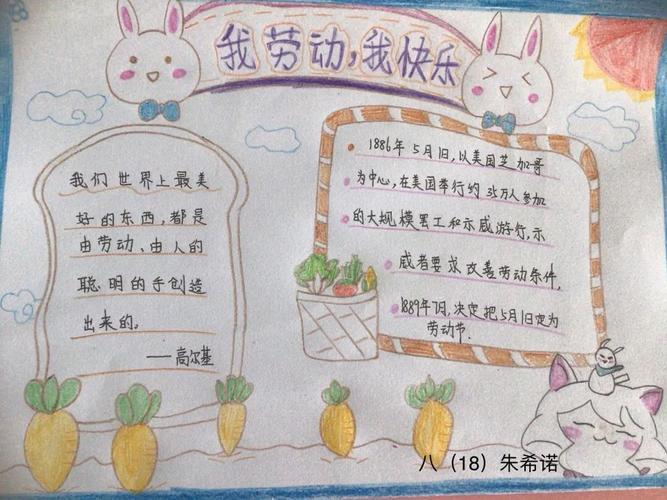 我劳动,我快乐
我们世界上最美
好的东西,都是
由劳动、由人的
聪明的手创造
出来的。
——高尔基
1886年5月1日,以美国芝加哥
为中心,在美国举行约35万人参加
的大规模罢工和示威游行,示
威者要求改善劳动条件,
1889年7月,决定把5月1日定为
劳动节.
八（18）朱希诺